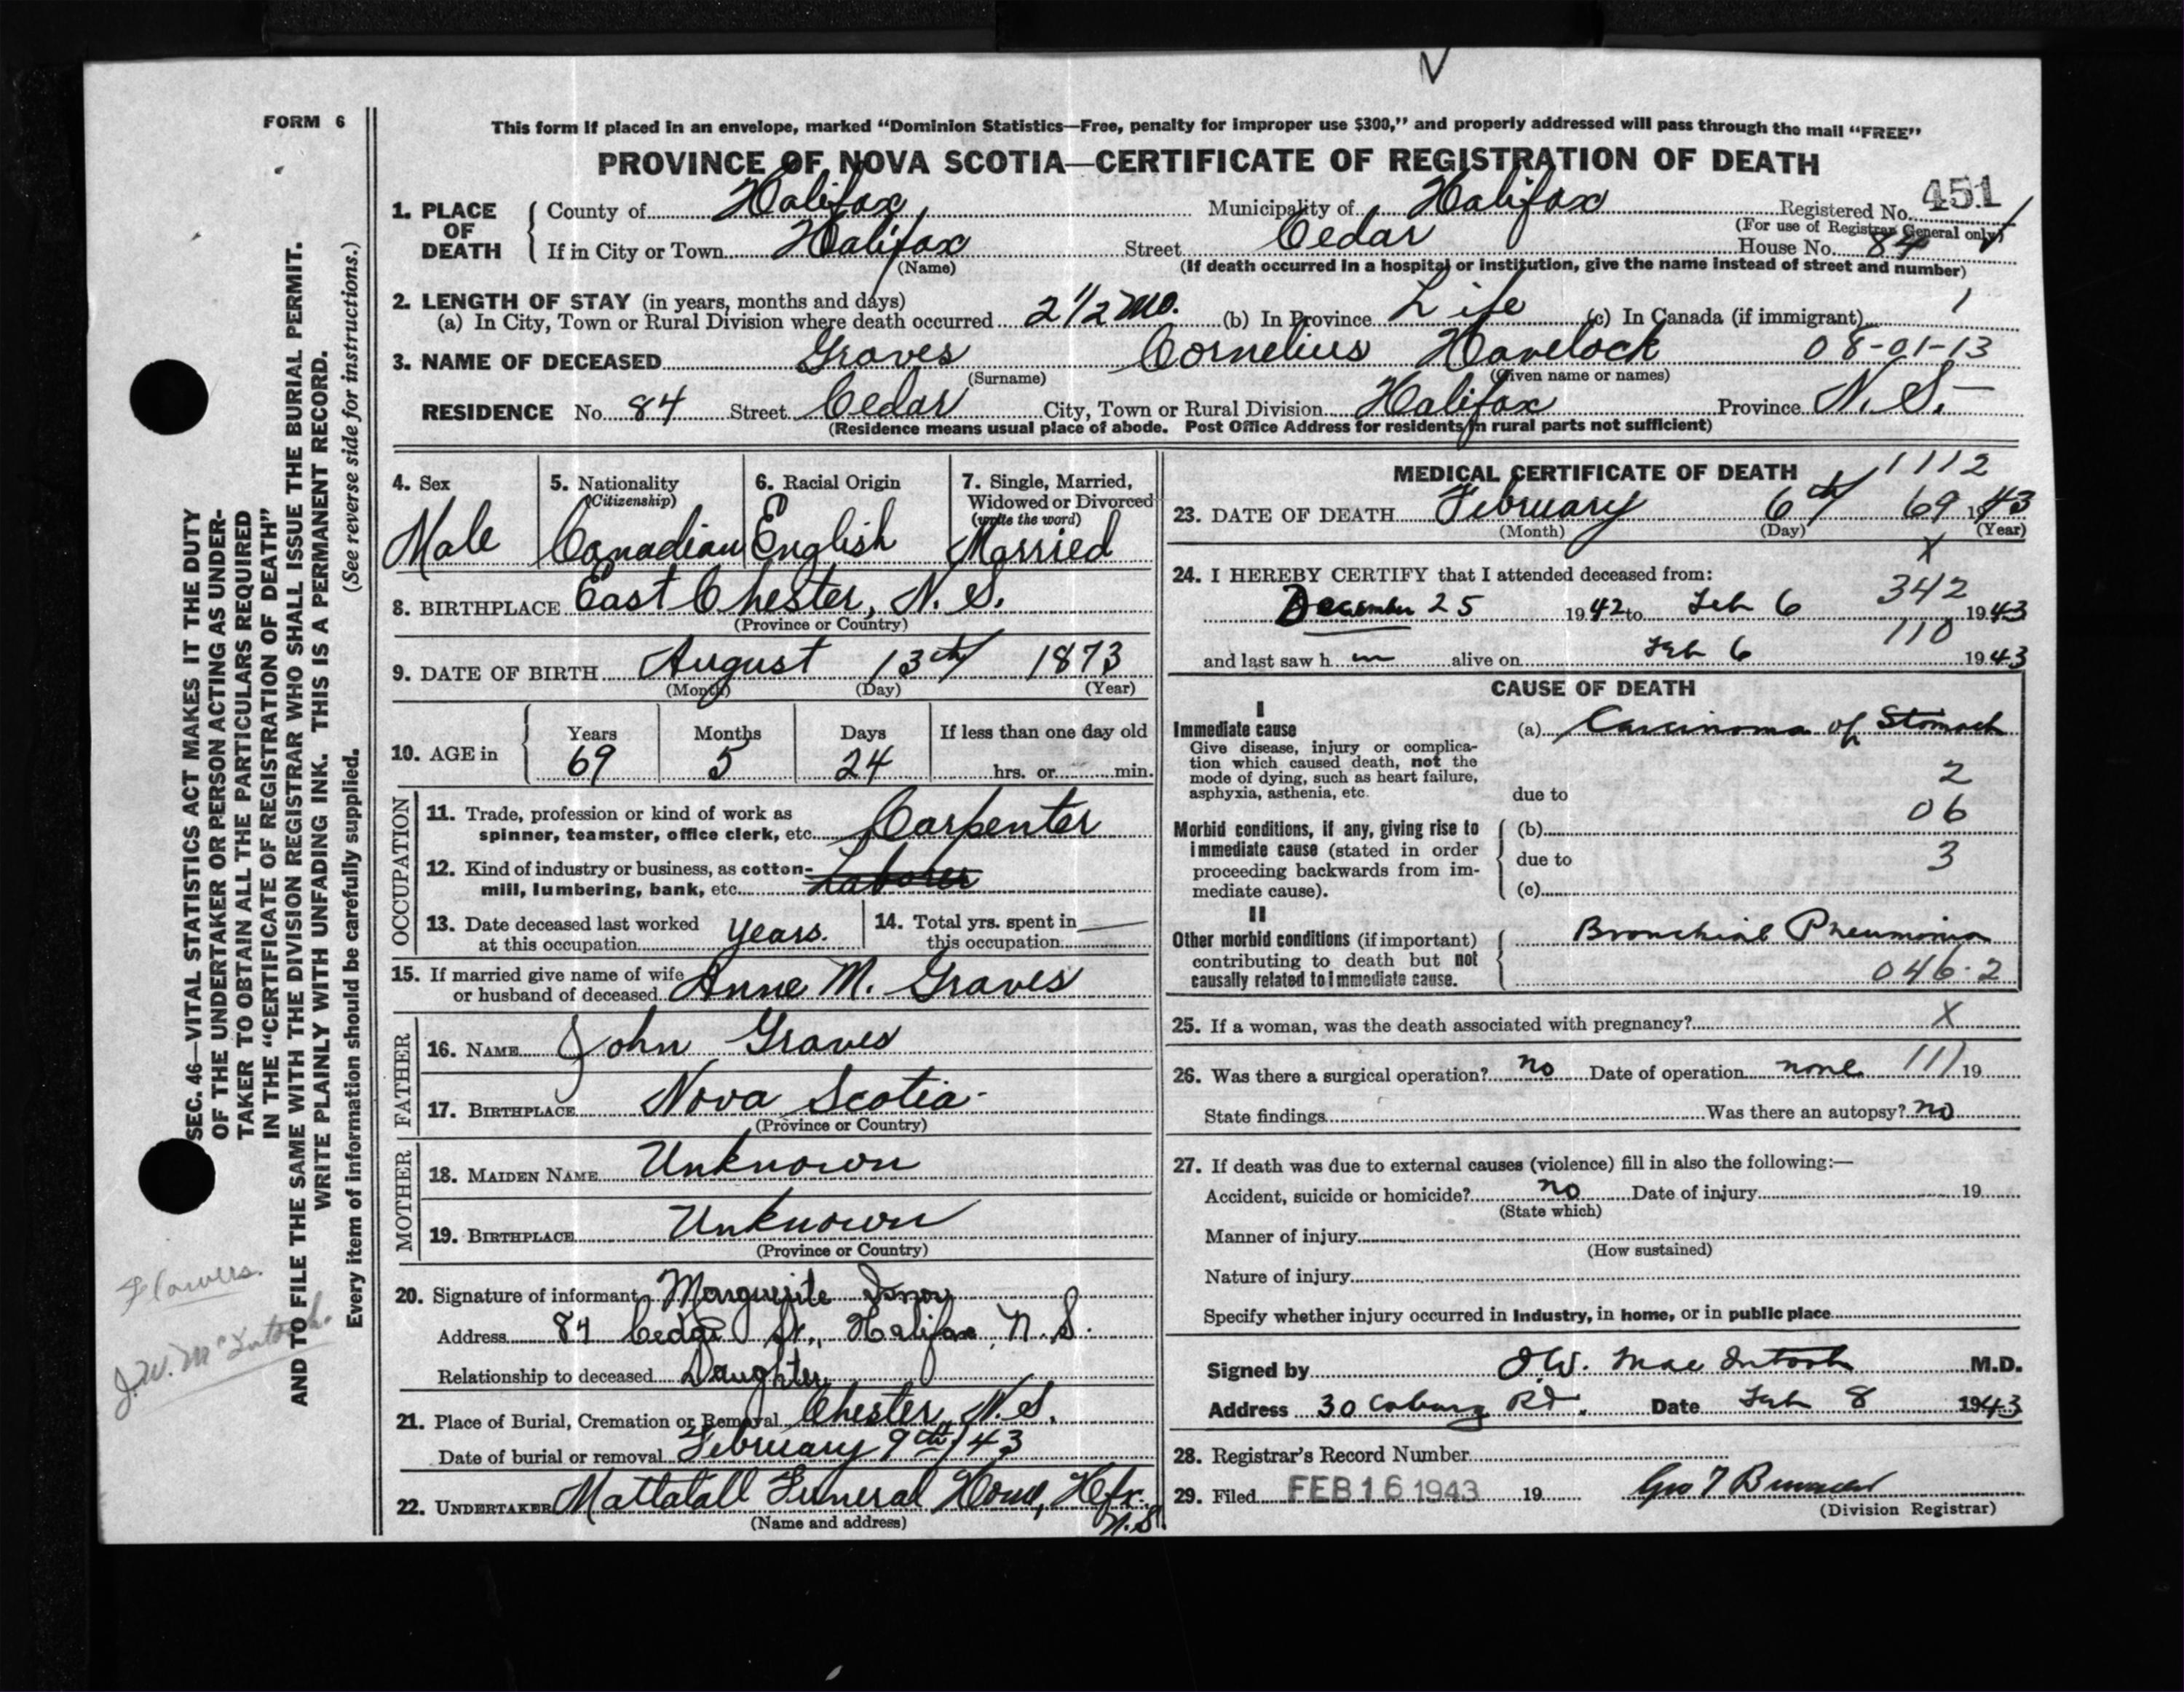 FORM 6
This form if placed in an envelope, marked “Dominion Statistics—Free, penalty for improper use $300,” and properly addressed will pass through the mail “FREE”
PROVINCE OF NOVA SCOTIA—CERTIFICATE OF REGISTRATION OF DEATH
1. PLACE OF DEATH { County of Halifax Municipality of Halifax Registered No. 451
(For use of Registrar General only)
If in City or Town Halifax Street Cedar House No. 84
(Name) (If death occurred in a hospital or institution, give the name instead of street and number)
2. LENGTH OF STAY (in years, months and days)
(a) In City, Town or Rural Division where death occurred 2 1/2 Mo. (b) In Province Life (c) In Canada (if immigrant) 1
3. NAME OF DECEASED Graves Cornelius Havelock 08-01-13
(Surname) (Given name or names)
RESIDENCE No. 84 Street Cedar City, Town or Rural Division Halifax Province N.S.—
(Residence means usual place of abode. Post Office Address for residents in rural parts not sufficient)
4. Sex Male
5. Nationality (Citizenship) Canadian
6. Racial Origin English
7. Single, Married, Widowed or Divorced (write the word) Married
8. BIRTHPLACE East Chester, N.S.
(Province or Country)
9. DATE OF BIRTH August 13th 1873
(Month) (Day) (Year)
10. AGE in { Years 69 Months 5 Days 24 If less than one day old
hrs. or min.
OCCUPATION
11. Trade, profession or kind of work as
spinner, teamster, office clerk, etc. Carpenter
12. Kind of industry or business, as cotton-
mill, lumbering, bank, etc. Laborer
13. Date deceased last worked
at this occupation years.
14. Total yrs. spent in
this occupation —
15. If married give name of wife
or husband of deceased Anne M. Graves
FATHER
16. NAME John Graves
17. BIRTHPLACE Nova Scotia-
(Province or Country)
MOTHER
18. MAIDEN NAME Unknown
19. BIRTHPLACE Unknown
(Province or Country)
20. Signature of informant Marguerite
Address 84 Cedar St., Halifax, N.S.
Relationship to deceased Daughter
21. Place of Burial, Cremation or Removal Chester, N.S.
Date of burial or removal February 9th/43
22. UNDERTAKER Mattatall Funeral Home, Hfx. N.S.
(Name and address)
MEDICAL CERTIFICATE OF DEATH 1112
23. DATE OF DEATH February 6th 69 1943
(Month) (Day) (Year)
X
24. I HEREBY CERTIFY that I attended deceased from:
342
December 25 1942 to Feb 6 1943
110
and last saw h im alive on Feb 6 1943
CAUSE OF DEATH
I
Immediate cause (a) Carcinoma of Stomach
Give disease, injury or complica-
tion which caused death, not the
mode of dying, such as heart failure,
asphyxia, asthenia, etc.
2
due to
06
Morbid conditions, if any, giving rise to
immediate cause (stated in order
proceeding backwards from im-
mediate cause).
(b)
due to 3
(c)
II
Other morbid conditions (if important)
contributing to death but not
causally related to immediate cause.
Bronchial Pneumonia
046.2
25. If a woman, was the death associated with pregnancy? X
26. Was there a surgical operation? no Date of operation none 111 19
State findings Was there an autopsy? no
27. If death was due to external causes (violence) fill in also the following:—
Accident, suicide or homicide? no Date of injury 19
(State which)
Manner of injury
(How sustained)
Nature of injury
Specify whether injury occurred in Industry, in home, or in public place
Signed by J.W. MacIntosh M.D.
Address 30 Coburg Rd. Date Feb 8 1943
28. Registrar’s Record Number
29. Filed FEB 16 1943 19
(Division Registrar)
SEC. 46—VITAL STATISTICS ACT MAKES IT THE DUTY
OF THE UNDERTAKER OR PERSON ACTING AS UNDER-
TAKER TO OBTAIN ALL THE PARTICULARS REQUIRED
IN THE “CERTIFICATE OF REGISTRATION OF DEATH”
AND TO FILE THE SAME WITH THE DIVISION REGISTRAR WHO SHALL ISSUE THE BURIAL PERMIT.
WRITE PLAINLY WITH UNFADING INK. THIS IS A PERMANENT RECORD.
Every item of information should be carefully supplied. (See reverse side for instructions.)
Flowers.
J.W. McIntosh.